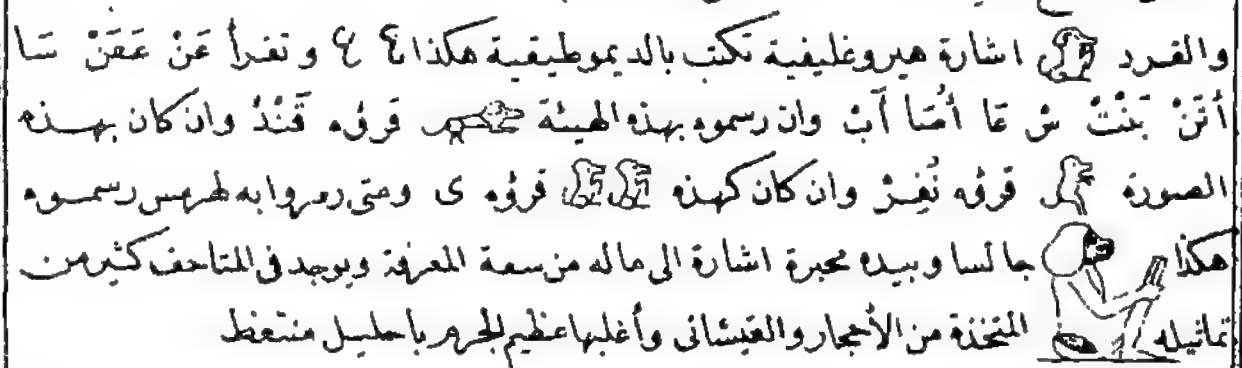 والقرد اشارة هيروغليفية تكتب بالديموطيقية هكذا و تقرأ عَنْ عَقَنْ سَا
أَنَنْ بَنْتْ ش عَا أُمَـا آبْ وان رسموه بهذه الهيئة قرؤه قَنْدْ وان كان بهـذه
الصورة قرؤه نُفِـرْ وان كان كهذه قرؤه ى ومتى رمزوا به لهرمس رسمـوه
هكذا جالسا وبيده محبرة اشارة الى ماله من سعة المعرفة ويوجد فى المتاحف كثير من
تماثيله المتخذة من الأحجار والقيشانى وأغلبها عظيم الجرم باحليل منتعظ